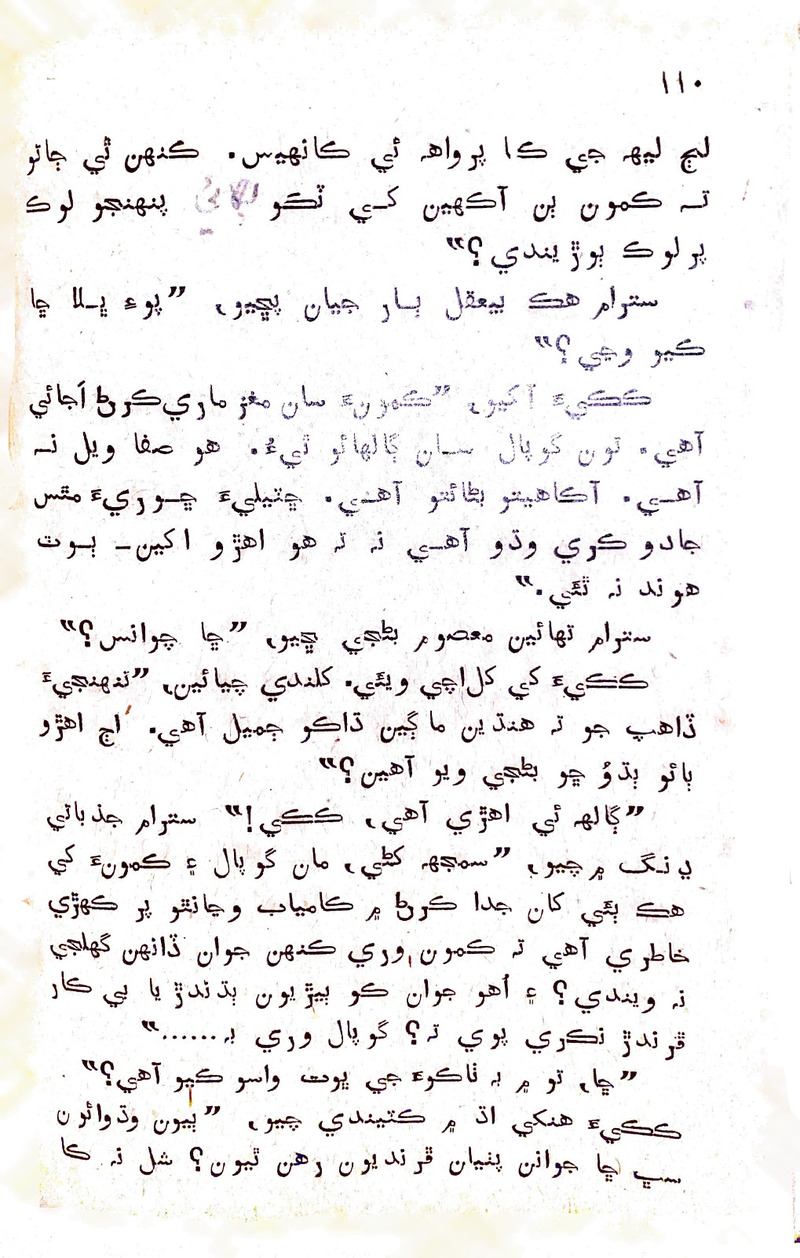 ١١٠
لڄ ليهہ جي ڪا پرواهہ ئي ڪانهيس. ڪنهن ٿي ڄاتو
تہ ڪمون ٻن آکهين کي ٽڪو پنهنجو لوڪ
پرلوڪ ٻوڙيندي؟“
سترام هڪ بيعقل ٻار جيان پڇيو، ”پوءِ ڀلا ڇا
ڪيو وڃي؟“
ڪڪيءَ آکيو، ”ڪمونءَ سان مغز ماري ڪرڻ اَجائي
آهي. تون گوپال سان ڳالهائو ٿيءُ. هو صفا ويل نہ
آهي. آڪاهيتو بڻائتو آهي. ڇتيليءَ ڇوريءَ مٿس
جادو ڪري وڌو آهي نہ تہ هو اهڙو اکين۔ ٻوٽ
هوند نہ ٿئي.“
سترام تهائين معصوم بڻجي ڇيو، ”ڇا چوانس؟“
ڪڪيءَ کي کل اچي ويئي. کلندي چيائين، ”تنهنجيءَ
ڏاهپ جو تہ هنڌين ماڳين ڌاڪو ڄميل آهي. اڄ اهڙو
ٻاٽو ٻڌوُ ڇو بڻجي ويو آهين؟“
”ڳالهہ ئي اهڙي آهي، ڪڪي!“ سترام جذباتي
ڍنگ ۾ چيو، ”سمجهہ کڻي، مان گوپال ۽ ڪمونءَ کي
هڪ ٻئي کان جدا ڪرڻ ۾ ڪامياب وڃانٿو پر ڪهڙي
خاطري آهي تہ ڪمون وري ڪنهن جوان ڏانهن گهلجي
نہ ويندي؟ ۽ اُهو جوان ڪو ٻيڙيون ٻڌندڙ يا بي ڪار
ڦرندڙ نڪري پوي تہ؟ گوپال وري بہ......“
”ڇا، تو ۾ بہ ٺاڪوءَ جي ڀوت واسو ڪيو آهي؟“
ڪڪيءَ هنکي اڌ ۾ ڪٽيندي چيو، ”ٻيون وڌوائون
سڀ ڇا جوانن پٺيان ڦرنديون رهن ٿيون؟ شل نہ ڪا